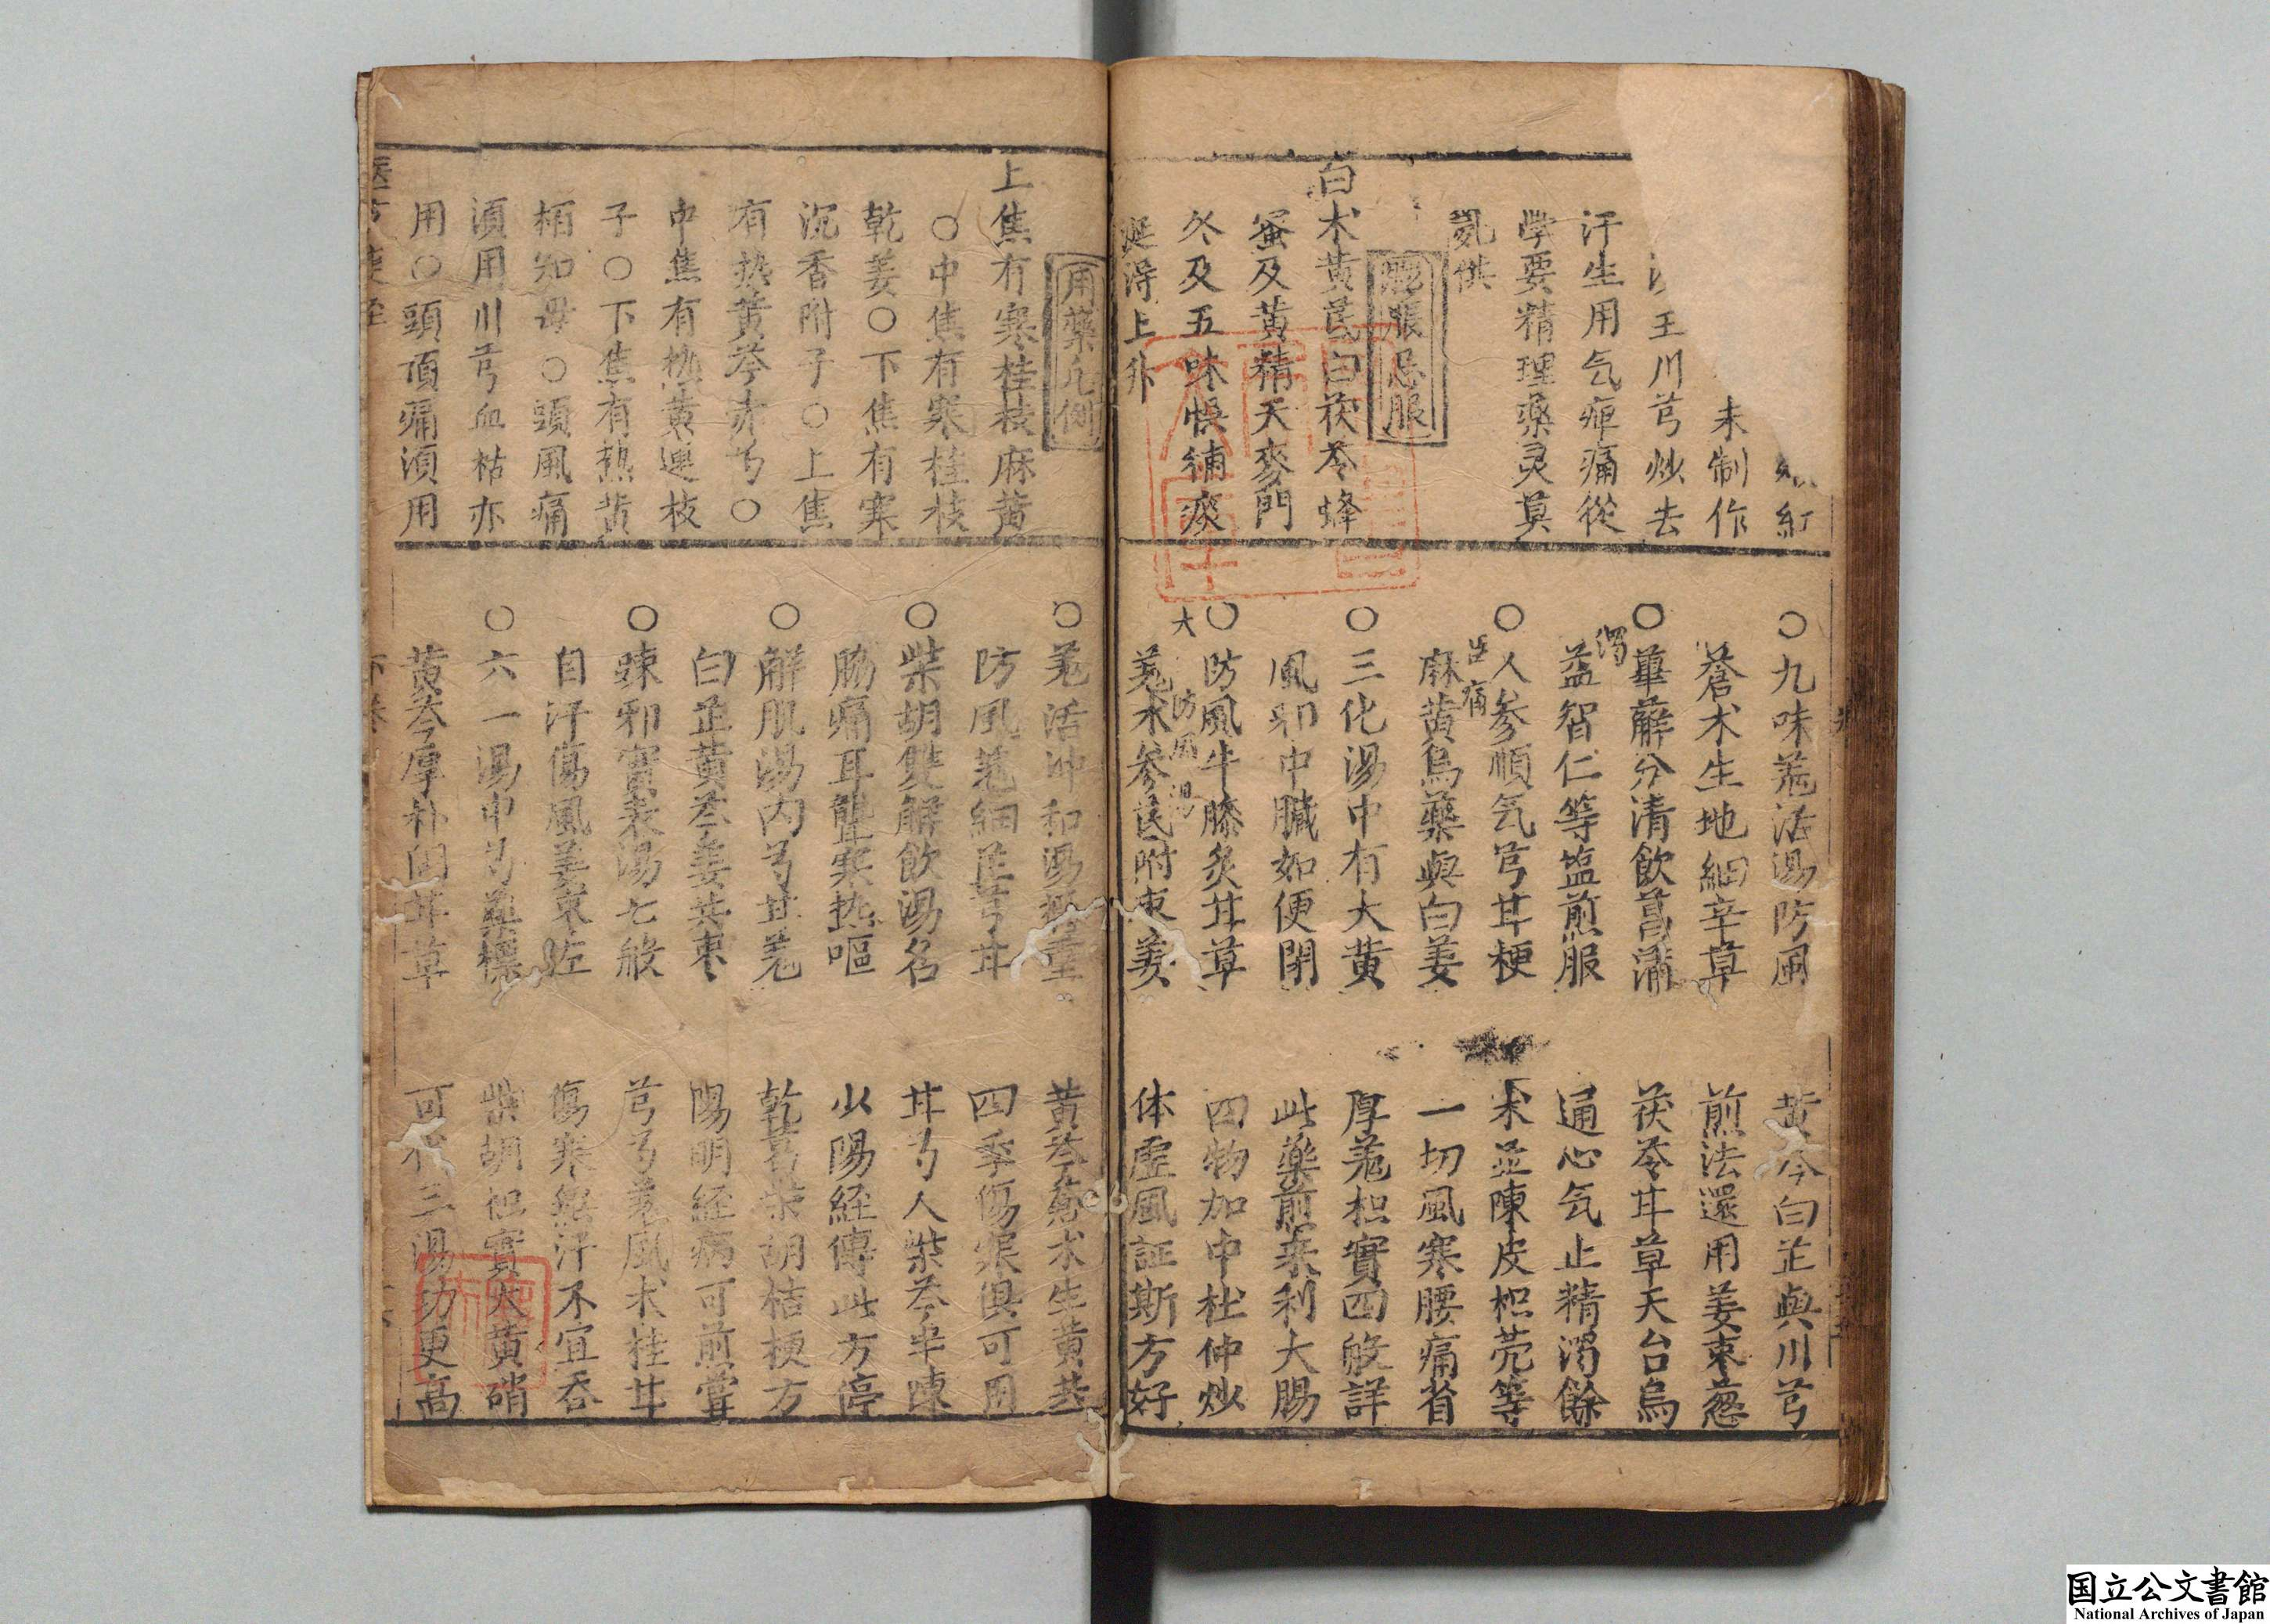 紅
未制作
王川芎炒去
汗生用气疸痛從
孛要精理藥灵莫
乱供
脹忌服
白术黄芪白茯苓蜂
蜜及黄精天麥門
冬及五味悞補痰
涎得上升
○九味羗活湯防風
黄芩白芷與川芎
蒼术生地細辛草
煎法還用姜枣葱
○萆薢分清飲菖蒲
茯苓甘草天台烏
濁
益智仁等塩煎服
通心气止精濁餘
○人參順气芎甘梗
术並陳皮枳売等
痛
麻黄烏藥與白姜
一切風寒腰痛省
○三化湯中有大黄
厚羗枳實四般詳
風邪中臓如便閉
此藥煎来利大腸
○防風牛膝炙甘草
四物加中杜仲炒
大防風湯
羗术參芪附枣姜
体虛風証斯方好
用藥凡例
上焦有寒桂枝麻黄
○中焦有寒桂枝
乾姜○下焦有寒
沉香附子○上焦
有热黄芩赤芍○
中焦有热黄連枝
子○下焦有熱黄
栢知母○頭風痛
須用川芎血枯亦
用○頭頂痛須用
○羗活沖和湯
黄芩蒼术生黄
防風羗細芷芎甘
四季傷寒俱可用
○柴胡雙解飲湯名
甘芍人柴芩半陳
脇痛耳聾寒热嘔
少陽経傳此方停
○解肌湯内芍甘羗
乾葛柴胡桔梗方
白芷黄芩姜共枣
陽明経病可煎嘗
○踈邪實表湯七般
芎芍羗風术桂甘
自汗傷風姜枣佐
傷寒無汗不宜吞
○六一湯中芍藥標
柴胡枳實大黄硝
黄芩厚朴同甘草
可代三湯功更高
国立公文書館
National Archives of Japan